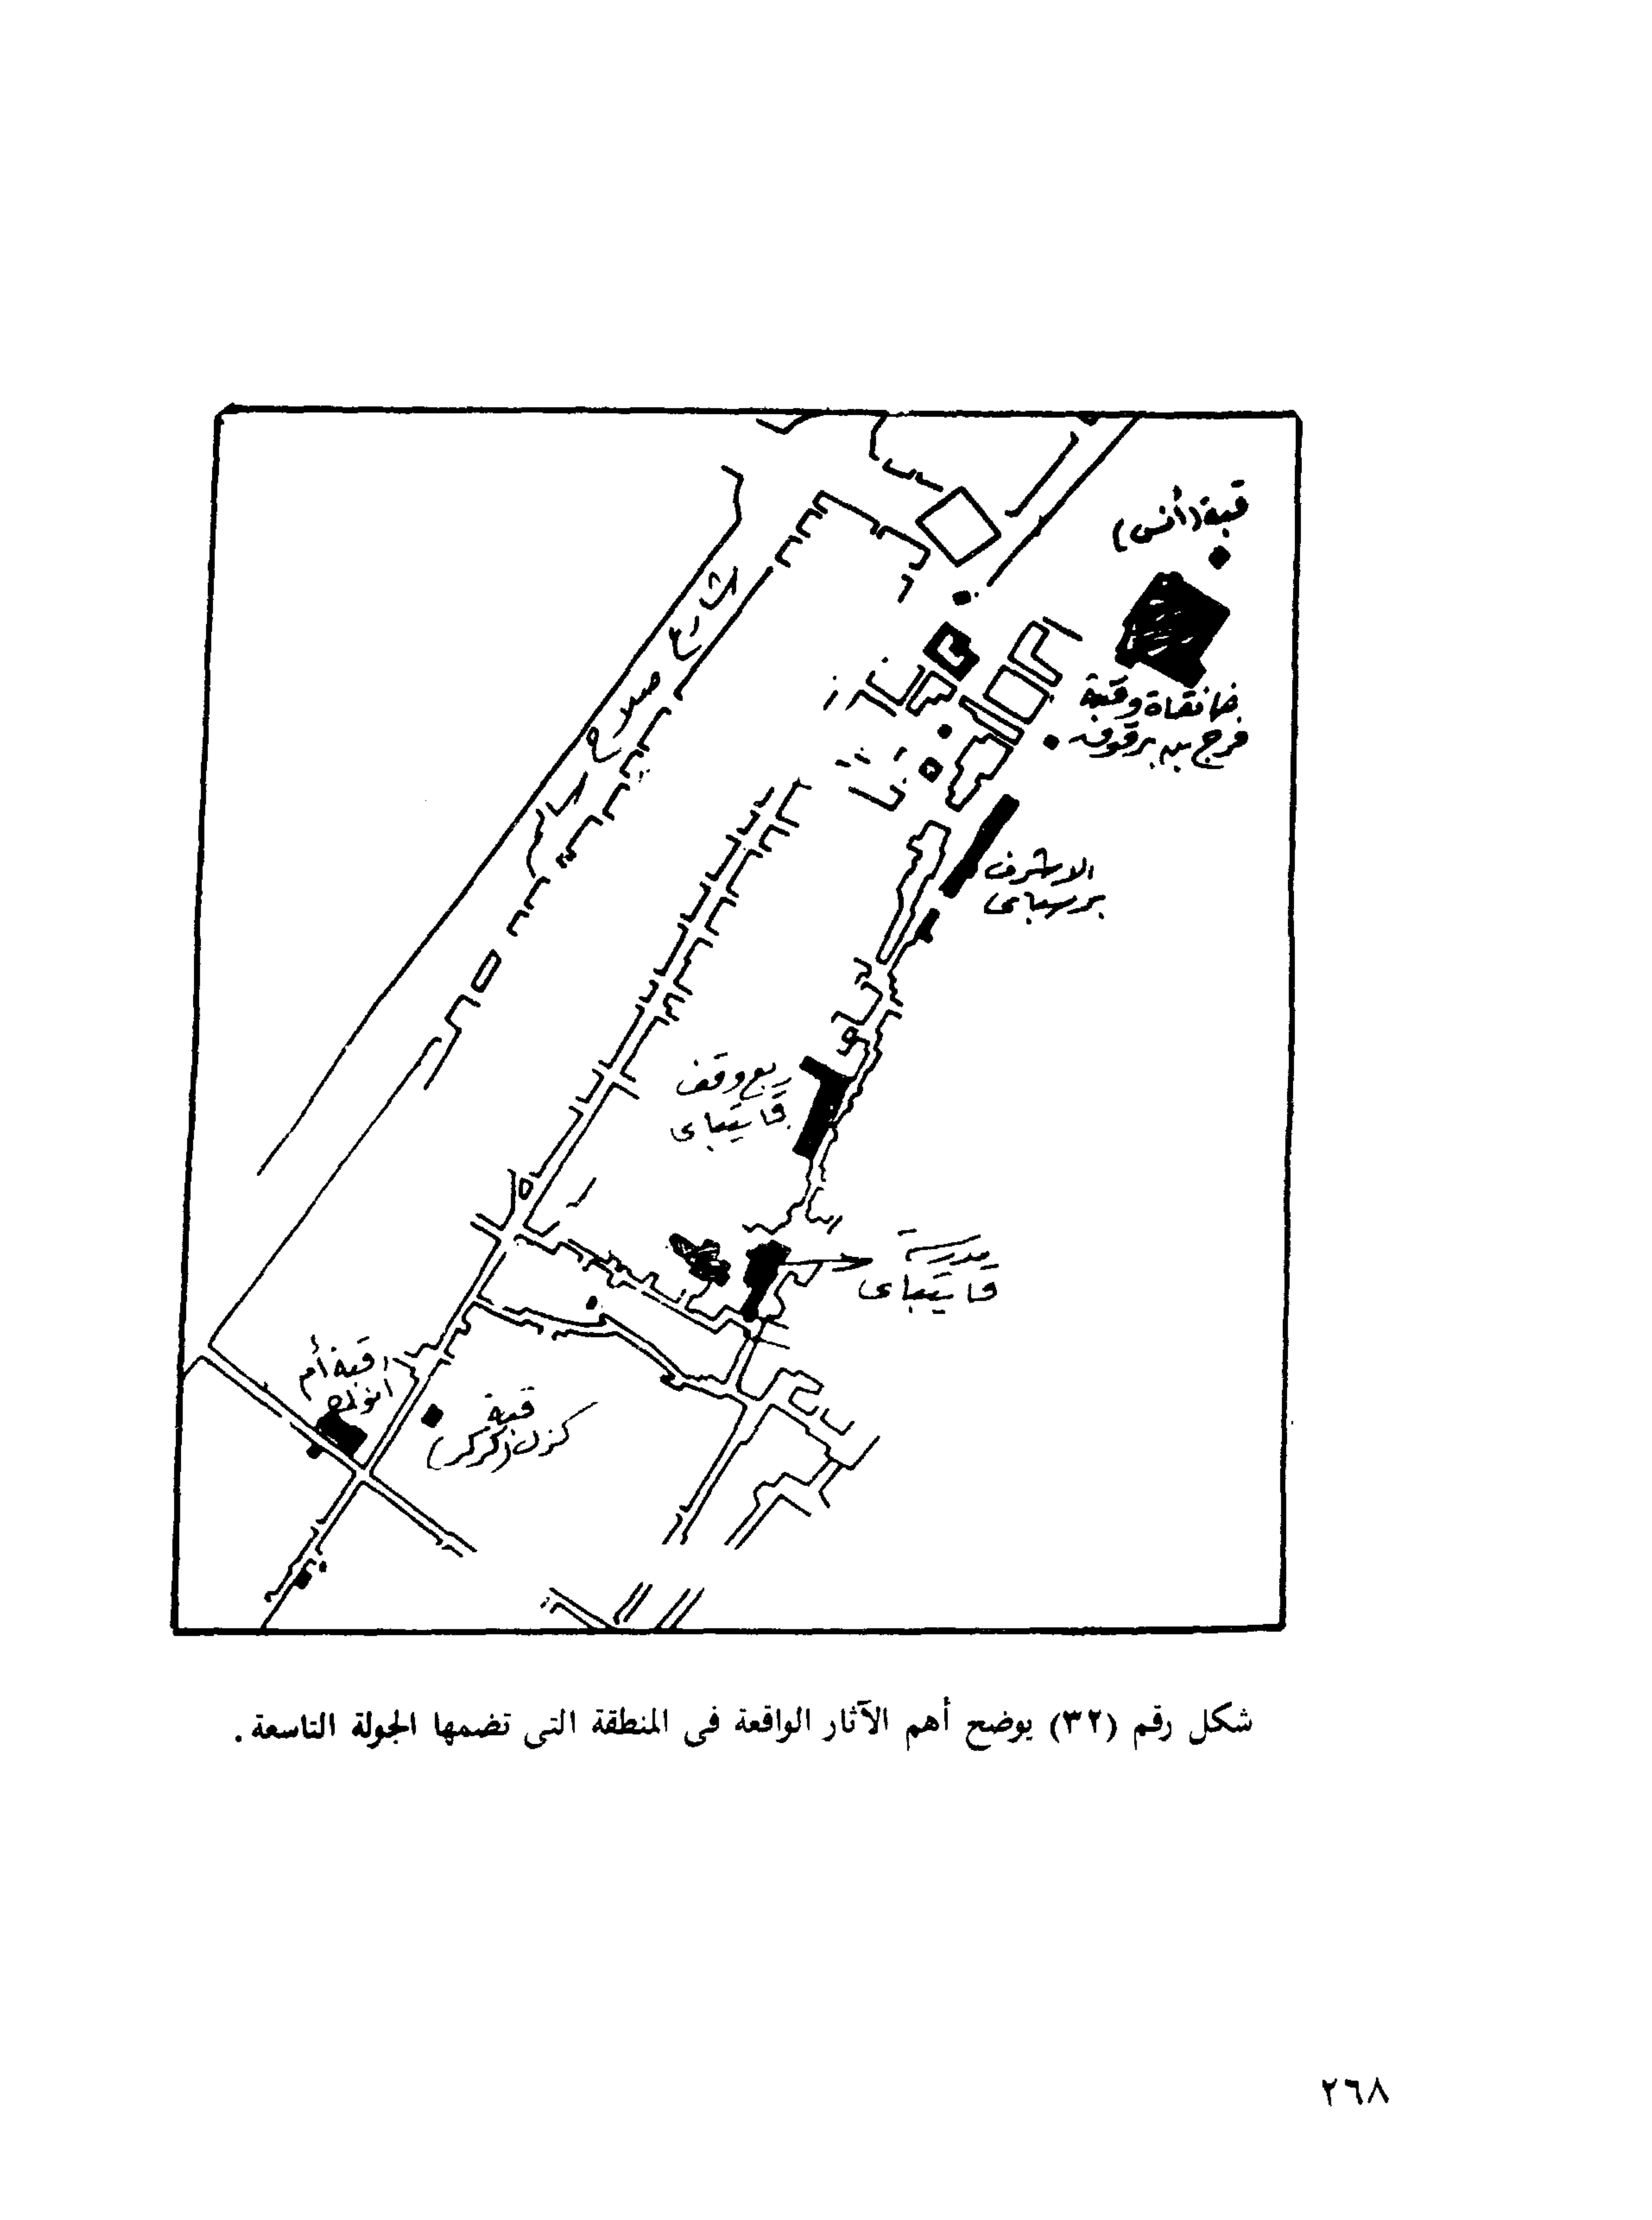 قبة (أنس)
خانقاة وقبة
فرج بن برقوق
الاشرف
برسباى
ربع وقف
قايتباى
مدرسة
قايتباى
شارع صلاح
قبة أم
انوك
قبة
كزل (كركر)
شكل رقم (٣٢) يوضح أهم الآثار الواقعة فى المنطقة التى تضمها الجولة التاسعة .
٢٦٨